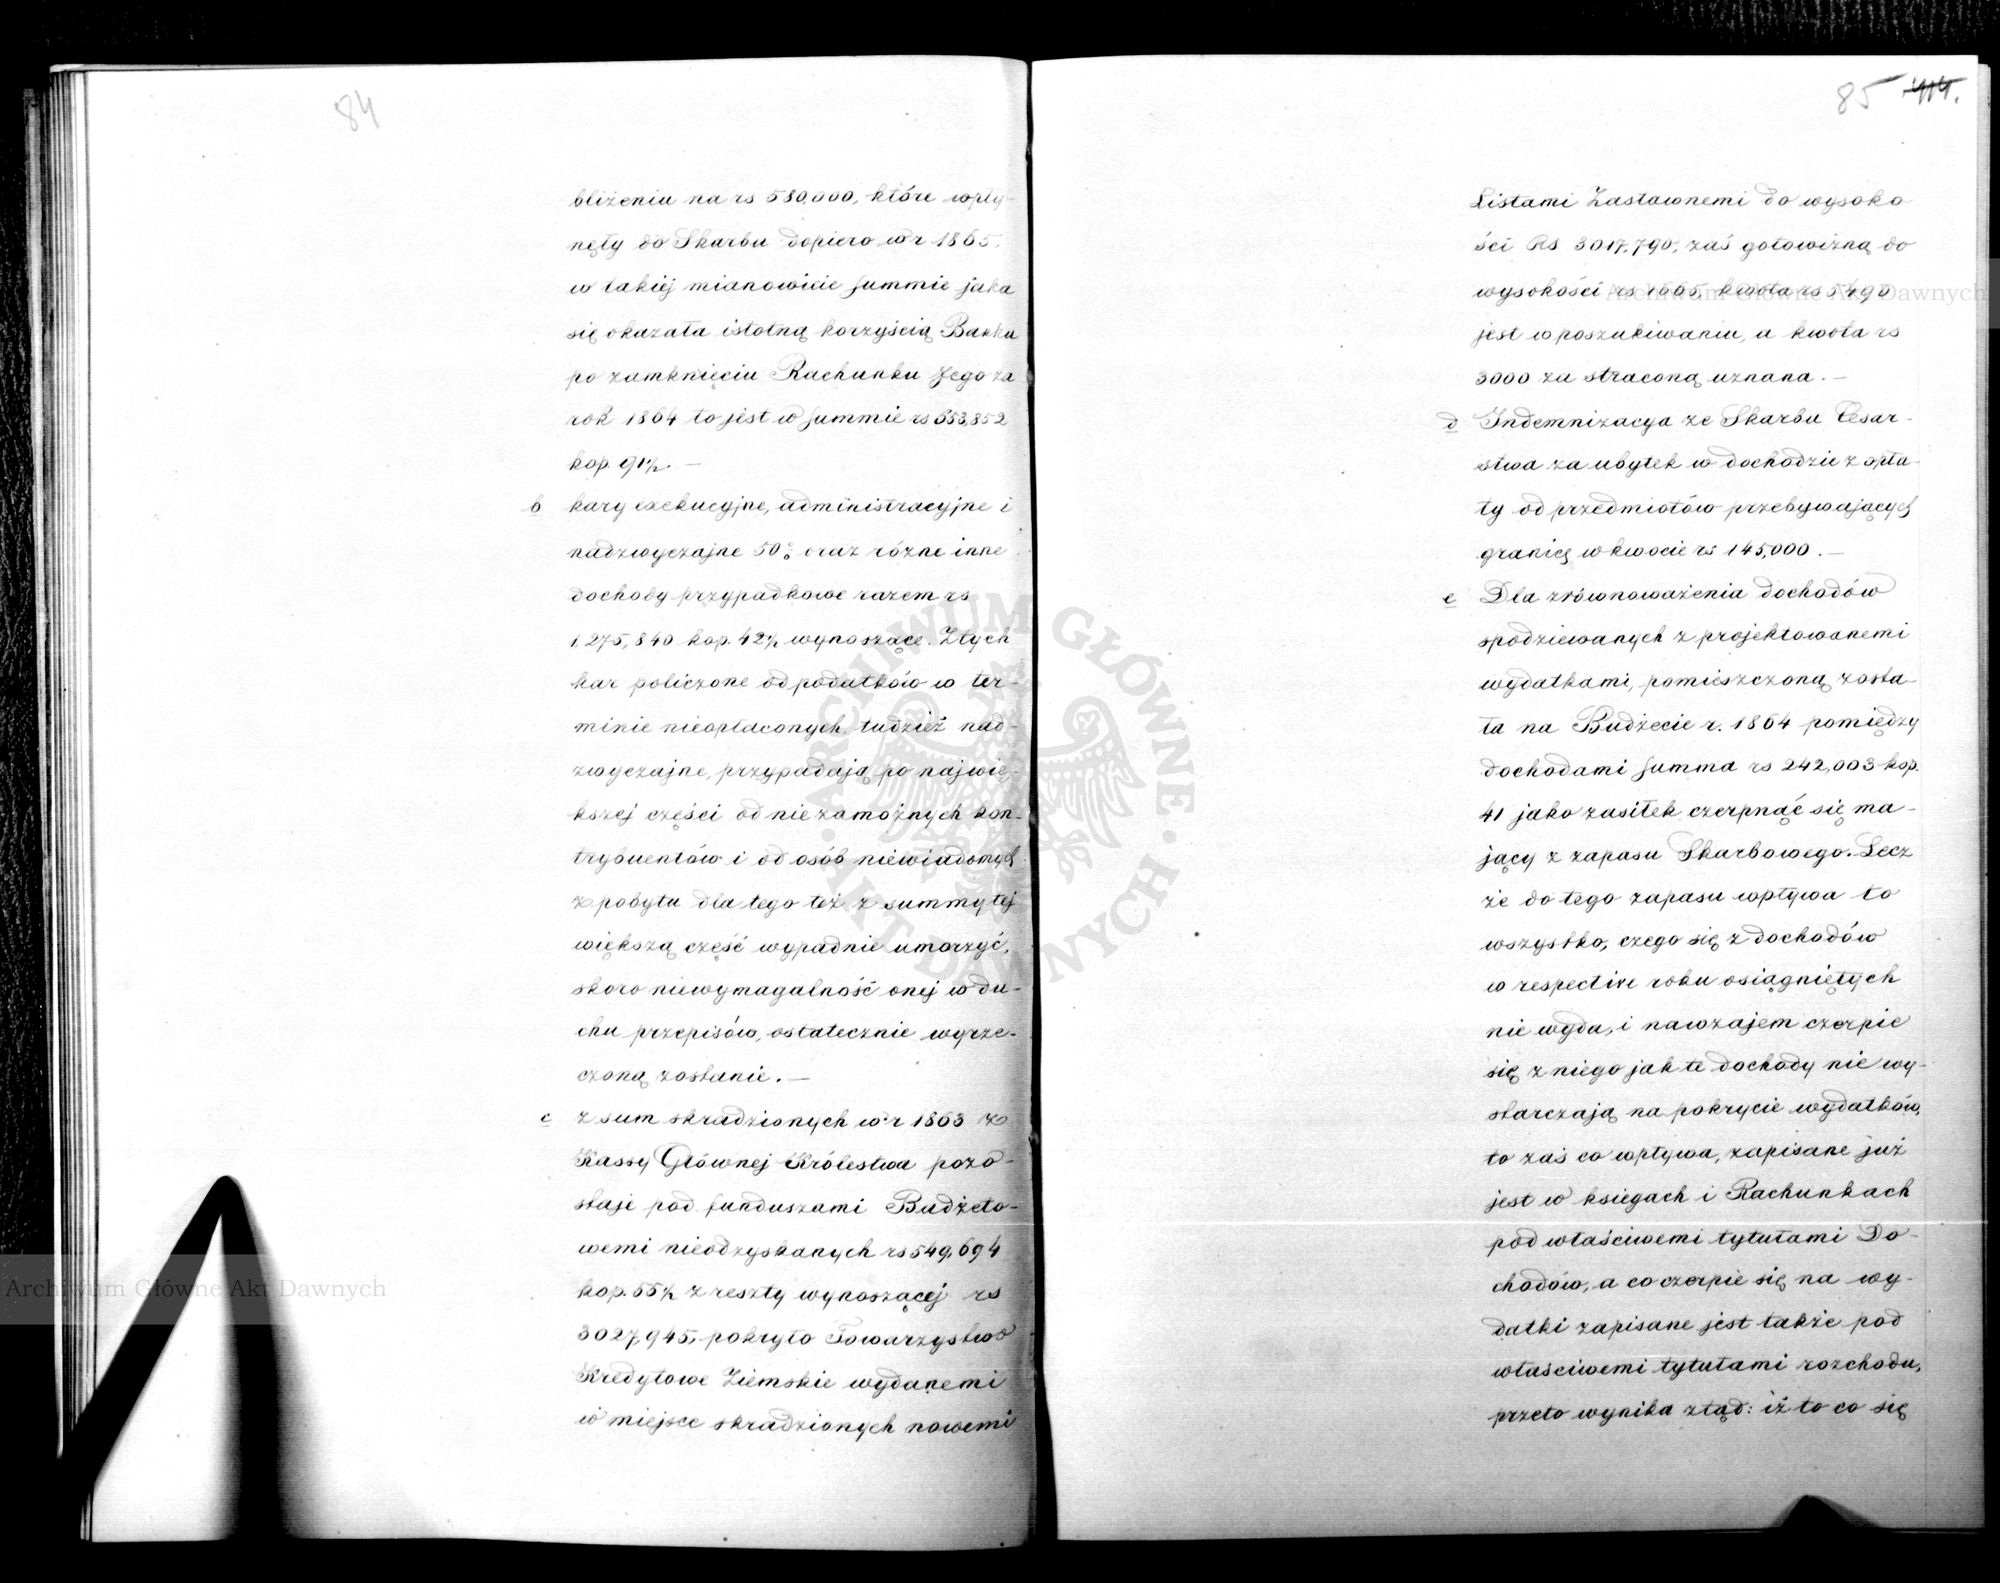 84
bliżeniu na rs 580,000, które wpły-
nęły do Skarbu dopiero w r 1865.
w takiéj mianowicie summie jaka
się okazała istotną korzyścią Banku
po zamknięciu Rachunku Jego za
rok 1864 to jest w summie rs 653,852
kop. 91½. —
b kary exekucyjne, administracyjne i
nadzwyczajne 50% oraz różne inne
dochody przypadkowe razem rs
1,275,840 kop. 42½ wynoszące. Z tych
kar policzone od podatków w ter-
minie nieopłaconych, tudzież nad-
zwyczajne, przypadają po najwię-
kszej części od niezamożnych kon-
trybuentów i od osób niewiadomych
z pobytu dla tego też z summy téj
większą część wypadnie umorzyć,
skoro niewymagalność onéj w du-
chu przepisów, ostatecznie wyrze-
czoną zostanie. —
c z sum skradzionych w r 1863 z
Kassy Głównej Królestwa pozo-
staje pod funduszami Budżeto-
wemi nieodzyskanych rs 549,694
kop. 55½ z reszty wynoszącéj rs
3027,945, pokryło Towarzystwo
Kredytowe Ziemskie wydanemi
w miejsce skradzionych nowemi
85 414.
Listami Zastawnemi do wysoko
ści Rs 3017,790, zaś gotowizną do
wysokości rs 1665 kwota rs 5490
jest w poszukiwaniu, a kwota rs
3000 za straconą uznana. —
d Indemnizacya ze Skarbu Cesar-
stwa za ubytek w dochodzie z opła-
ty od przedmiotów przebywających
granicę w kwocie rs 145,000. —
e Dla zrównoważenia dochodów
spodziewanych z projektowanemi
wydatkami, pomieszczoną zosta-
ła na Budżecie r. 1864 pomiędzy
dochodami summa rs 242,003 kop.
41 jako zasiłek czerpnąć się ma-
jący z zapasu Skarbowego. Lecz
że do tego zapasu wpływa to
wszystko, czego się z dochodów
w respective roku osiągniętych
nie wyda, i nawzajem czerpie
się z niego jak te dochody nie wy-
starczają na pokrycie wydatków,
to zaś co wpływa, zapisane już
jest w księgach i Rachunkach
pod właściwemi tytułami Do-
chodów, a co czerpie się na wy-
datki zapisane jest także pod
właściwemi tytułami rozchodu,
przeto wynika ztąd: iż to co się
Archiwum Główne Akt Dawnych
Archiwum Główne Akt Dawnych
ARCHIWUM GŁÓWNE · AKT DAWNYCH ·